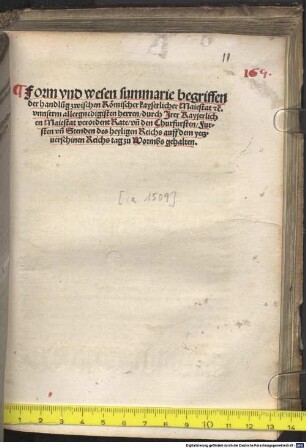 11
169.
¶Form vnd wesen summarie begriffen
der handlũg zwischen Römischer kayserlicher Maiestat ꝛc.
vnnserm allergnedigisten herren / durch Irer Kayserlich
en Maiestat verordent Räte / vñ den Churfursten / Fur-
sten vñ Stenden des heyligen Reichs auff dem yetz
verschinen Reichs tag zu Wormbs gehalten.
[ca 1509]
0 1 2 3 4 5 6 7 8 9 10 11 12 13 14